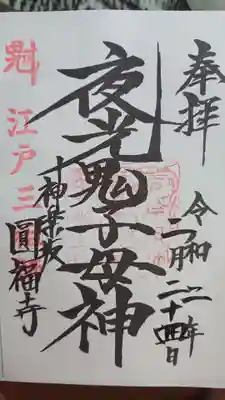 奉拝
令和二年
二月二十四日
夜光鬼子母神
神楽坂
圓福寺
魁 江戸三